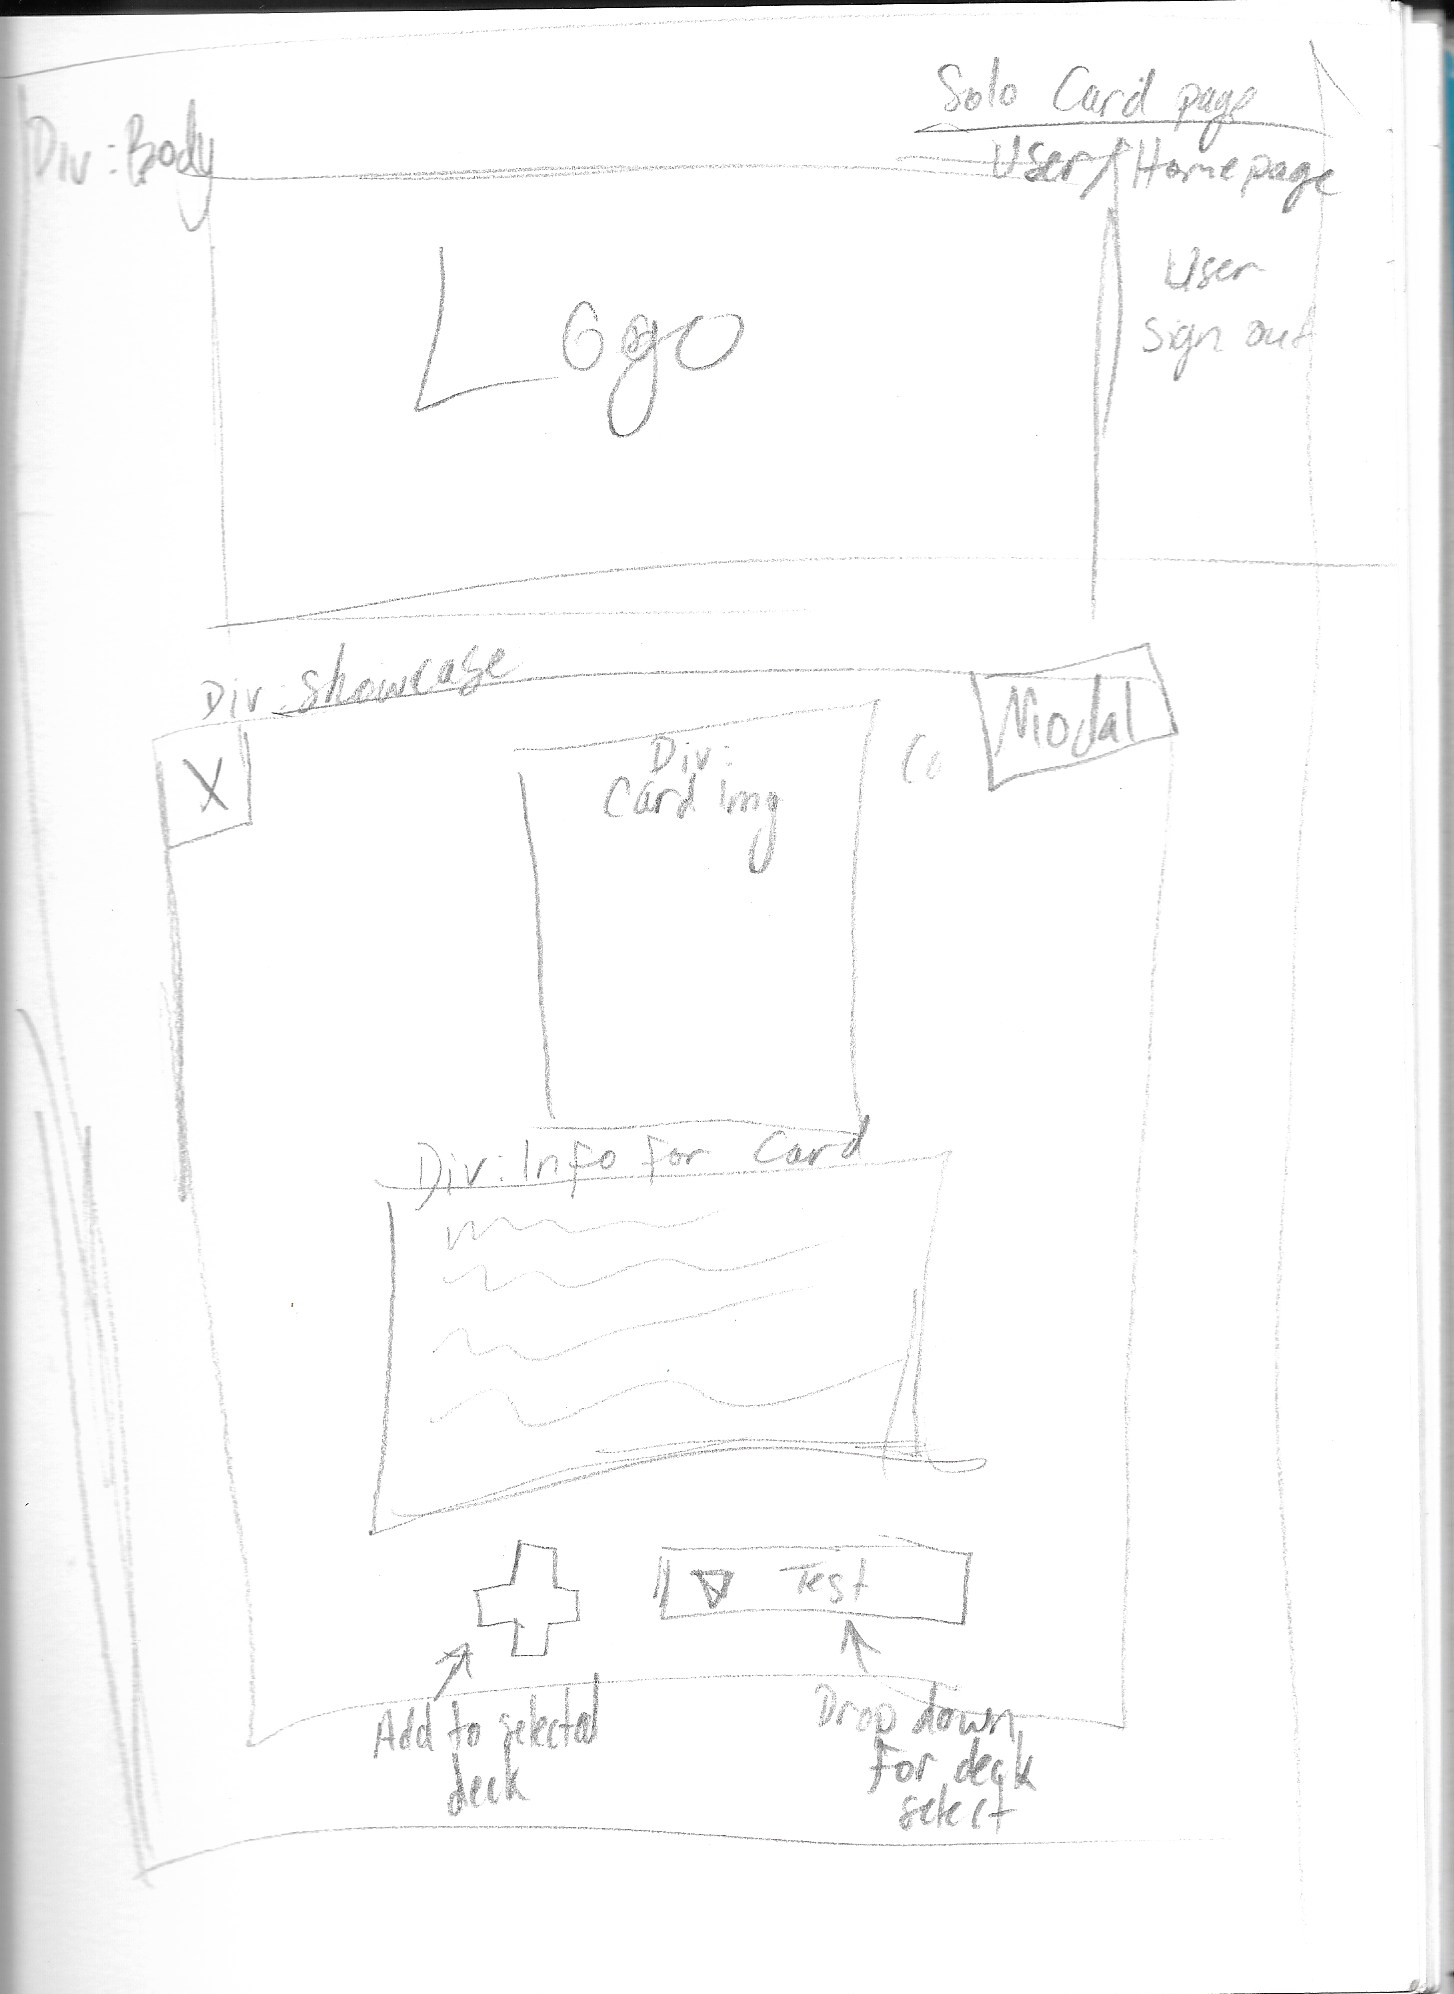 Solo Card page
Div: Body
User/Homepage
Logo
User
Sign out
Div: Showcase
Modal
X
Div:
Card img
Co
Div: Info For Card
Test
Add to selected
deck
Drop down
For deck
select